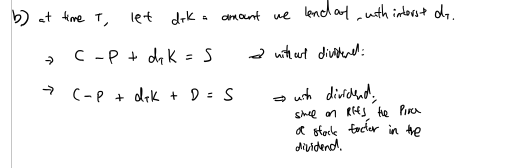 b) at time T, let dₜK = amount we lend out, with interest dₜ.
→ C - P + dₜK = S ⇒ without dividend:
→ C - P + dₜK + D = S ⇒ with dividend,
since on the
of stock factor in the
dividend.